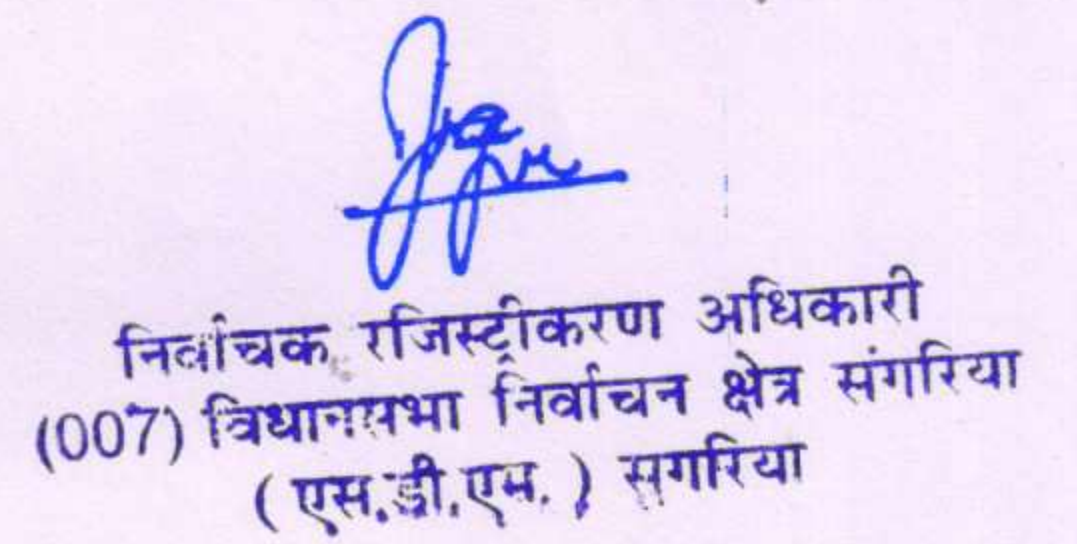 निर्वाचक रजिस्ट्रीकरण अधिकारी
(007) विधानसभा निर्वाचन क्षेत्र संगरिया
( एस.डी.एम. ) सगरिया